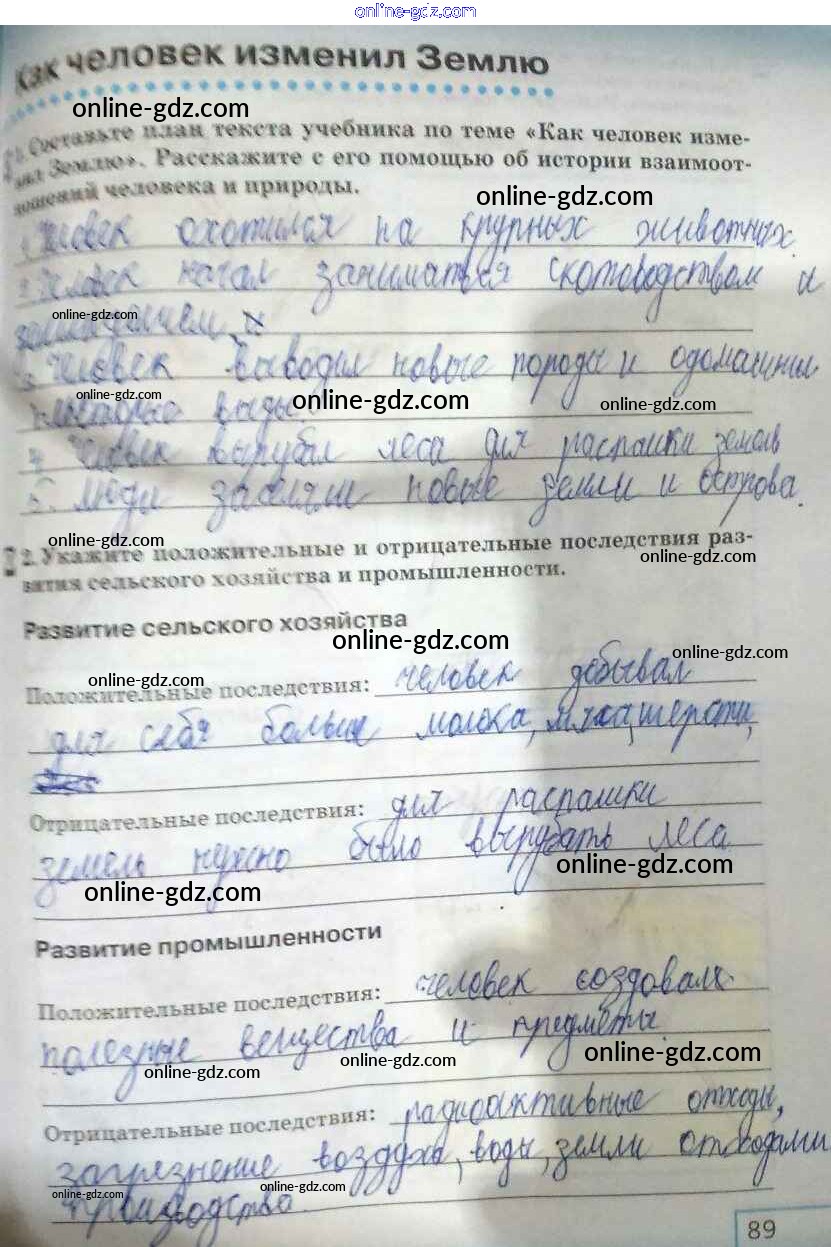 online-gdz.com
Как человек изменил Землю
online-gdz.com
1. Составьте план текста учебника по теме «Как человек изме-
нил Землю». Расскажите с его помощью об истории взаимоот-
ношений человека и природы.
online-gdz.com
1. Человек охотился на крупных животных.
2. Человек начал заниматься скотоводством и
online-gdz.com
земледелием
3. Человек выводил новые породы и одомашнил
online-gdz.com online-gdz.com online-gdz.com
некоторые виды.
4. Человек вырубал леса для распашки земель
5. Люди заселяли новые земли и острова.
online-gdz.com online-gdz.com
2. Укажите положительные и отрицательные последствия раз-
вития сельского хозяйства и промышленности.
Развитие сельского хозяйства
online-gdz.com online-gdz.com
online-gdz.com
Положительные последствия: человек добывал
для себя больше молока, мяса, шерсти,
Отрицательные последствия: для распашки
земель нужно было вырубать леса
online-gdz.com online-gdz.com
Развитие промышленности
Положительные последствия: человек создовал
полезные вещества и предметы.
online-gdz.com online-gdz.com online-gdz.com
Отрицательные последствия: радиоактивные отходы,
загрезнение воздуха, воды, земли отходами
online-gdz.com online-gdz.com
производства.
89